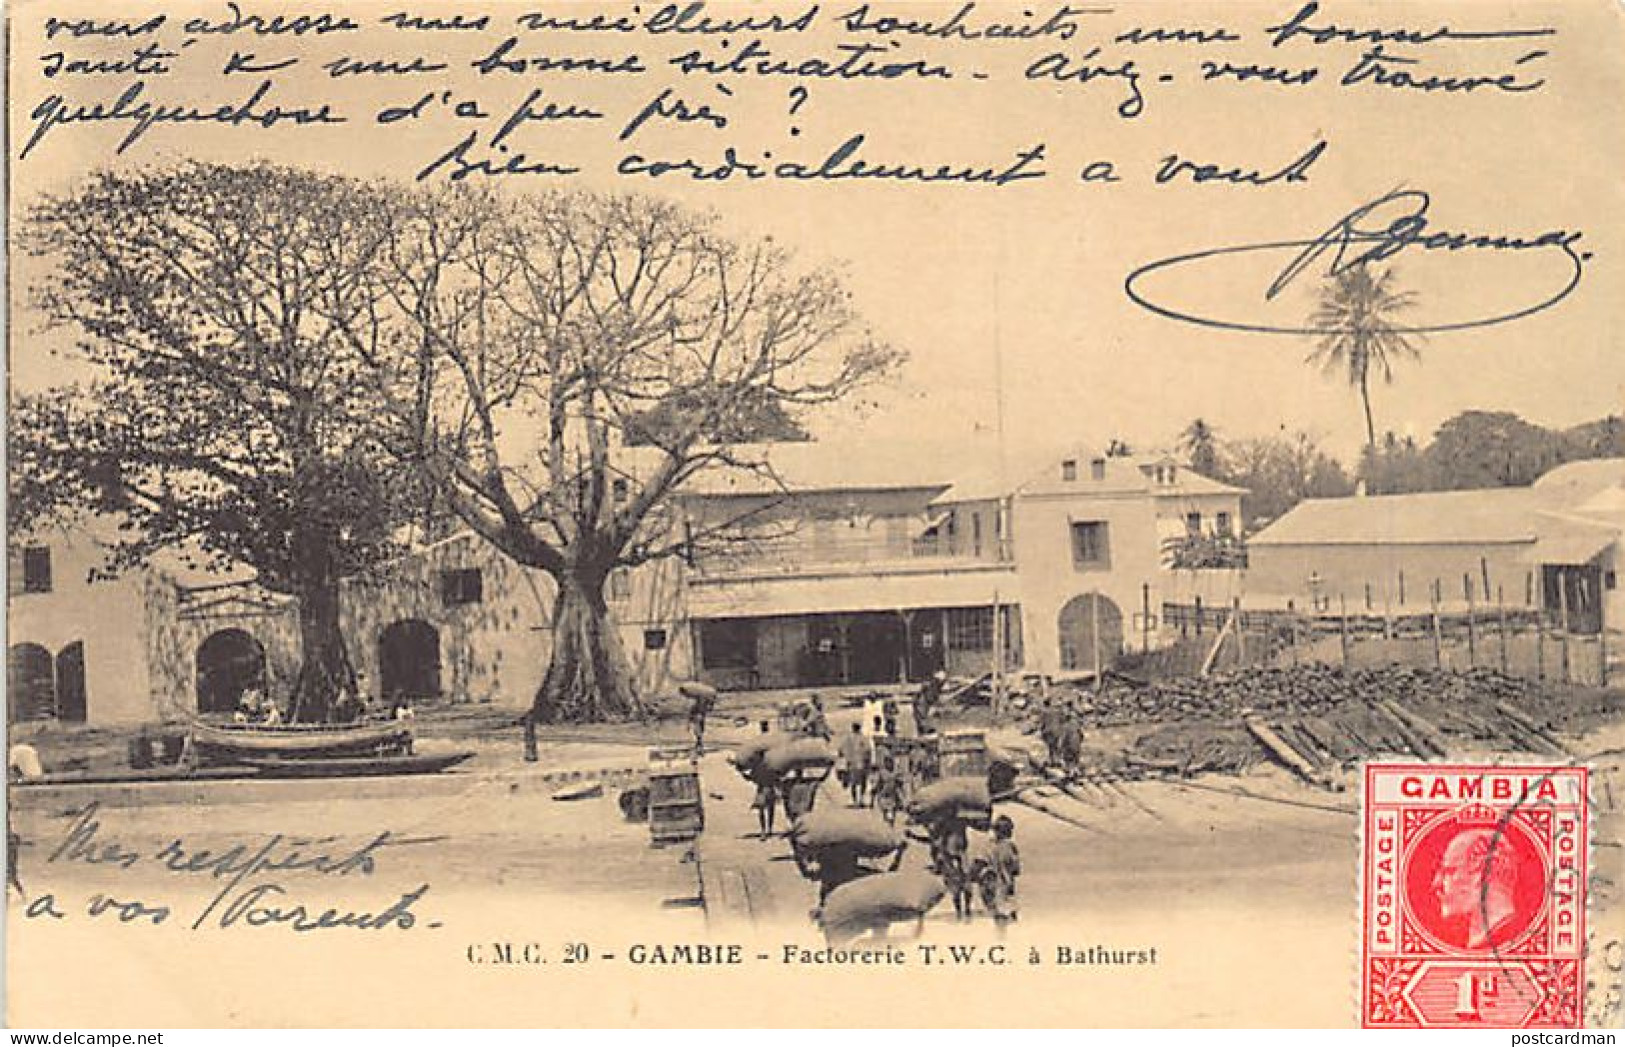 vous adresse mes meilleurs souhaits une bonne
santé & une bonne situation - Avez-vous trouvé
quelquechose d'a peu près ?
Bien cordialement a vous
Mes respects
a vos Parents.
C.M.C. 20 - GAMBIE - Factorerie T.W.C. à Bathurst
GAMBIA
POSTAGE
POSTAGE
1d
postcardman